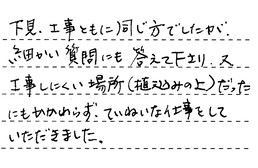 下見、工事ともに同じ方でしたが、
細かい質問にも答えて下さり、又
工事しにくい場所(植え込みの上)だった
にもかかわらず、ていねいな仕事をして
いただきました。